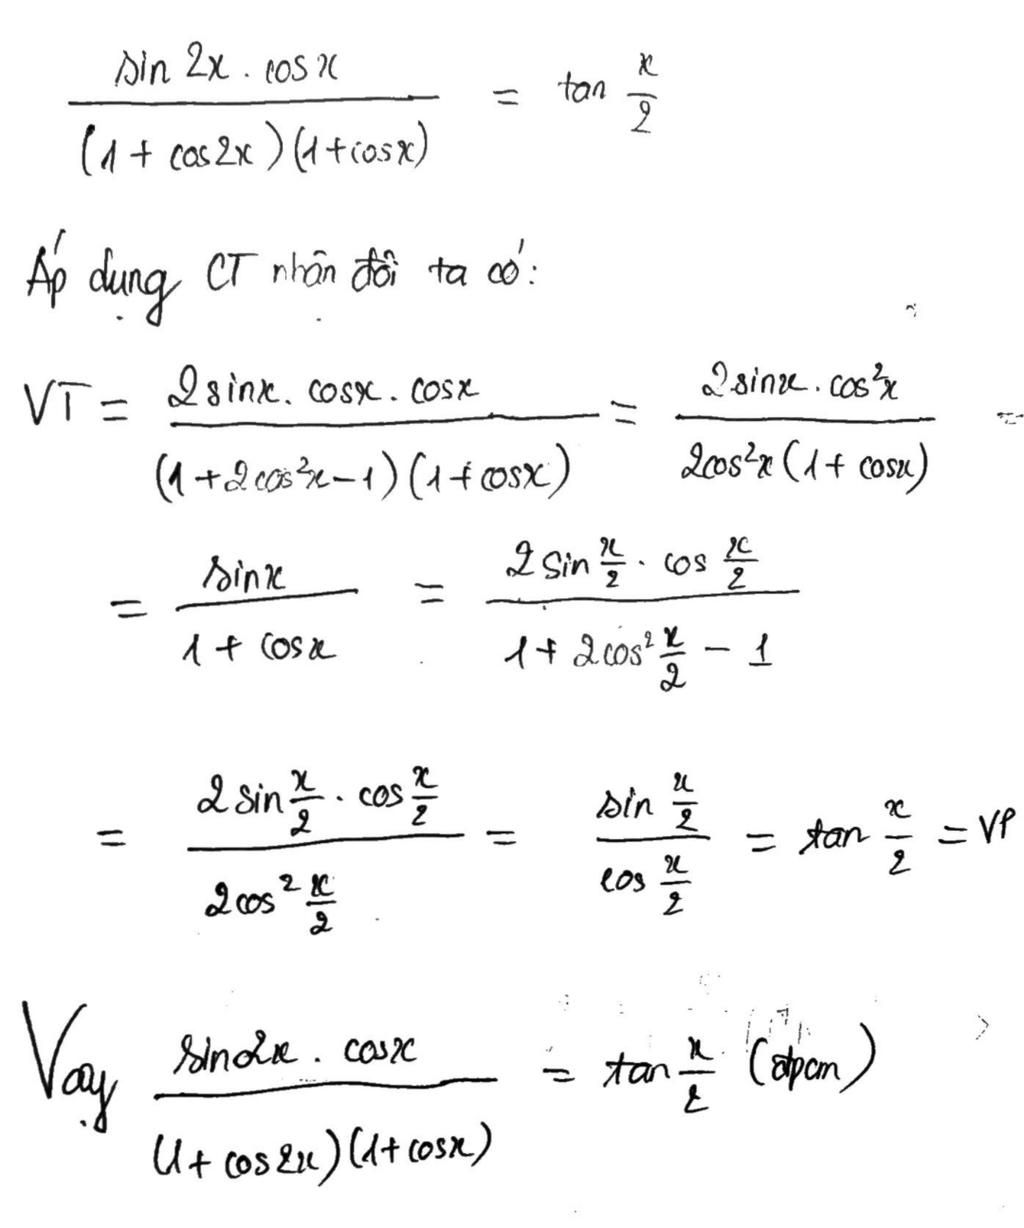 sin 2x . cos x / (1 + cos 2x)(1 + cos x) = tan x/2
Áp dụng CT nhân đôi ta có:
VT = 2 sin x . cos x . cos x / (1 + 2cos²x - 1)(1 + cos x) = 2 sin x . cos²x / 2cos²x (1 + cos x) =
= sin x / 1 + cos x = 2 sin x/2 . cos x/2 / 1 + 2cos² x/2 - 1
= 2 sin x/2 . cos x/2 / 2cos² x/2 = sin x/2 / cos x/2 = tan x/2 = VP
Vậy sin 2x . cos x / (1 + cos 2x)(1 + cos x) = tan x/2 (đpcm)